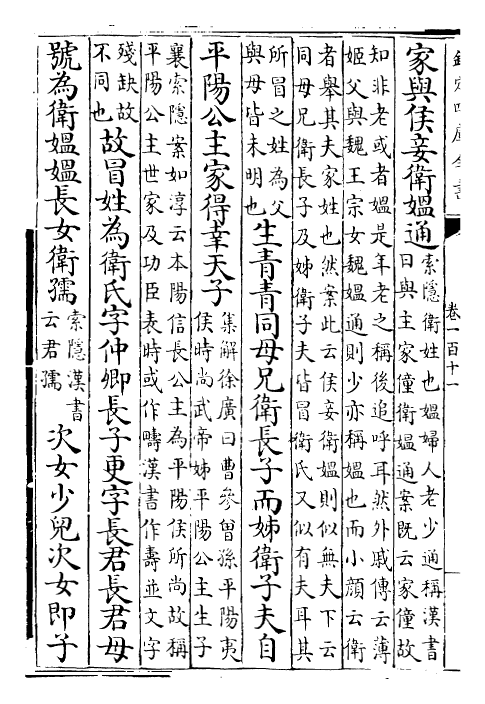 欽定四庫全書
卷一百十一
家與侯妾衛媼通索隱衛姓也媼婦人老少通稱漢書曰與主家僮衛媼通案既云家僮故
知非老或者媼是年老之稱後追呼耳然外戚傳云薄姬父與魏王宗女魏媼通則少亦稱媼也而小顔云衛
者舉其夫家姓也然案此云侯妾衛媼則似無夫下云同母兄衛長子及姊衛子夫皆冒衛氏又似有夫耳其
所冒之姓為父與母皆未明也生青青同母兄衛長子而姊衛子夫自
平陽公主家得幸天子集解徐廣曰曹參曾孫平陽夷侯時尚武帝姊平陽公主生子
襄索隱案如淳云本陽信長公主為平陽侯所尚故稱平陽公主世家及功臣表時或作疇漢書作壽並文字
殘缺故不同也故冒姓為衛氏字仲卿長子更字長君長君母
號為衛媼媼長女衛孺索隱漢書云君孺次女少兒次女即子